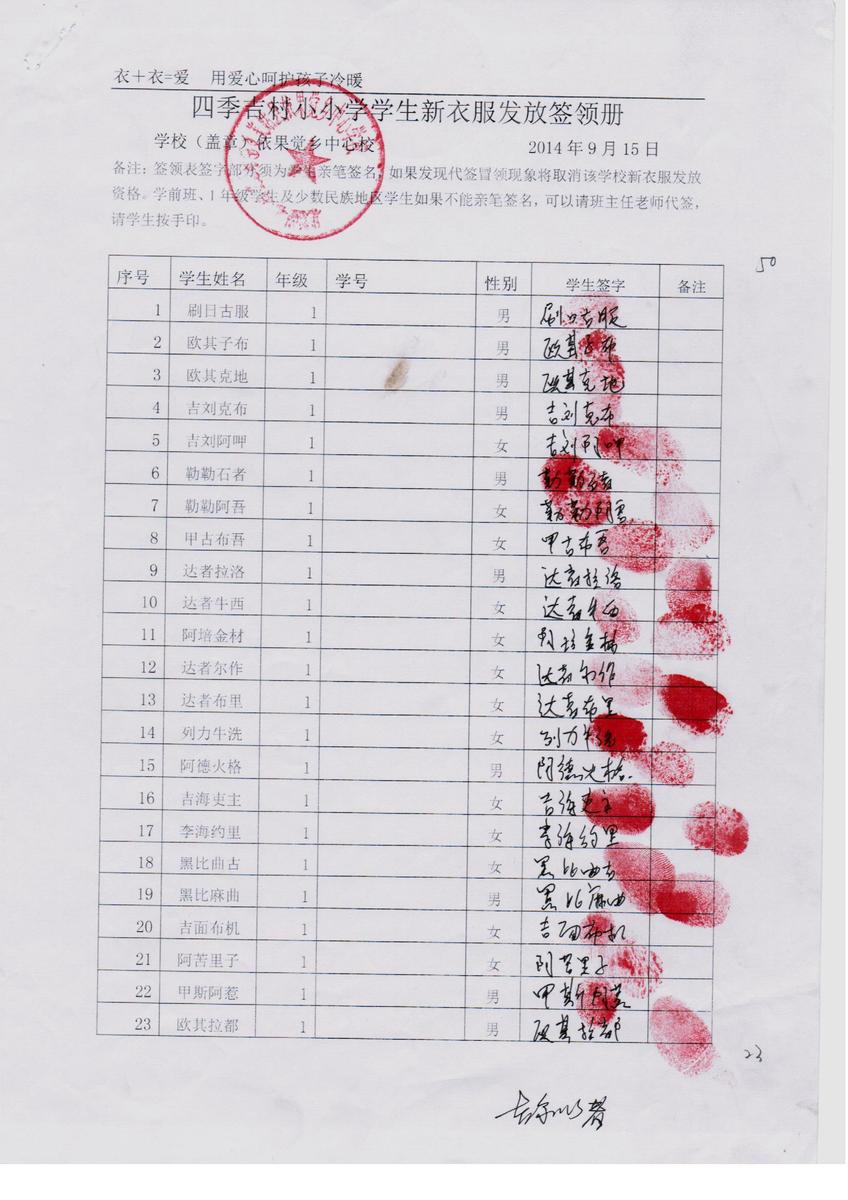 衣+衣=爱 用爱心呵护孩子冷暖
四季吉村小小学学生新衣服发放签领册
学校（盖章）依果觉乡中心校 2014年9月15日
备注：签领表签字部分须为学生亲笔签名，如果发现代签冒领现象将取消该学校新衣服发放
资格。学前班、1年级学生及少数民族地区学生如果不能亲笔签名，可以请班主任老师代签，
请学生按手印。
50
序号 学生姓名 年级 学号 性别 学生签字 备注
1 刷日古服 1 男 刷日古服
2 欧其子布 1 男 欧其子布
3 欧其克地 1 男 欧其克地
4 吉刘克布 1 男 吉刘克布
5 吉刘阿呷 1 女 吉刘阿呷
6 勒勒石者 1 男 勒勒石者
7 勒勒阿吾 1 女 勒勒阿吾
8 甲古布吾 1 女 甲古布吾
9 达者拉洛 1 男 达者拉洛
10 达者牛西 1 女 达者牛西
11 阿培金材 1 女 阿培金材
12 达者尔作 1 女 达者尔作
13 达者布里 1 女 达者布里
14 列力牛洗 1 女 列力牛洗
15 阿德火格 1 男 阿德火格
16 吉海吏主 1 女 吉海吏主
17 李海约里 1 女 李海约里
18 黑比曲古 1 女 黑比曲古
19 黑比麻曲 1 男 黑比麻曲
20 吉面布机 1 女 吉面布机
21 阿苦里子 1 女 阿苦里子
22 甲斯阿惹 1 男 甲斯阿惹
23 欧其拉都 1 男 欧其拉都
23